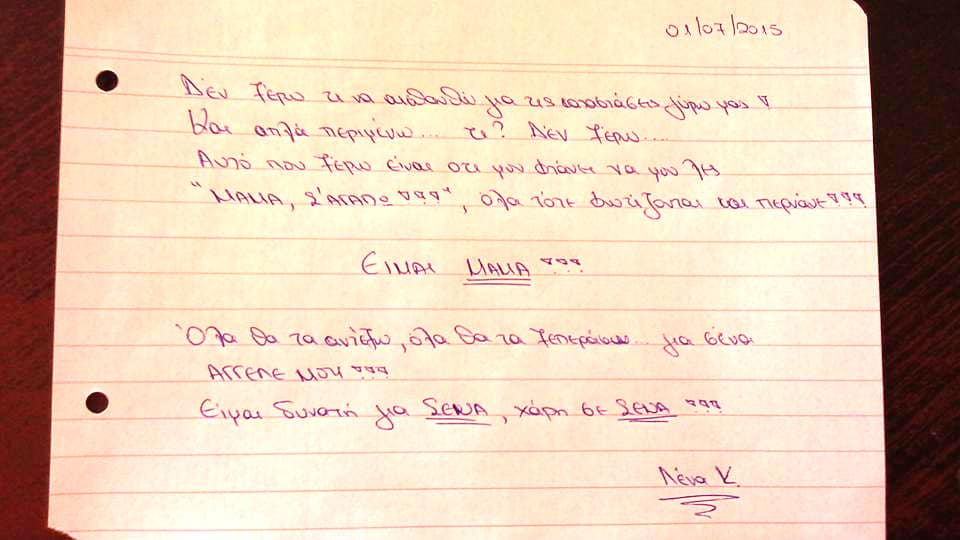 01/07/2015
Δεν ξέρω τι να αισθανθώ για τις καταστάσεις γύρω μας
Και απλά περιμένω... τι? Δεν ξέρω....
Αυτό που ξέρω είναι οτι μου φτάνει να μου λες
"ΜΑΜΑ, Σ'ΑΓΑΠΩ ♡♡♡", όλα τότε φωτίζονται και περνάνε ♡♡♡
ΕΙΜΑΙ ΜΑΜΑ ♡♡♡
Όλα θα τα αντέξω, όλα θα τα ξεπεράσω... για σένα
ΑΓΓΕΛΕ ΜΟΥ ♡♡♡
Είμαι δυνατή για ΣΕΝΑ, χάρη σε ΣΕΝΑ ♡♡♡
Λένα Κ.